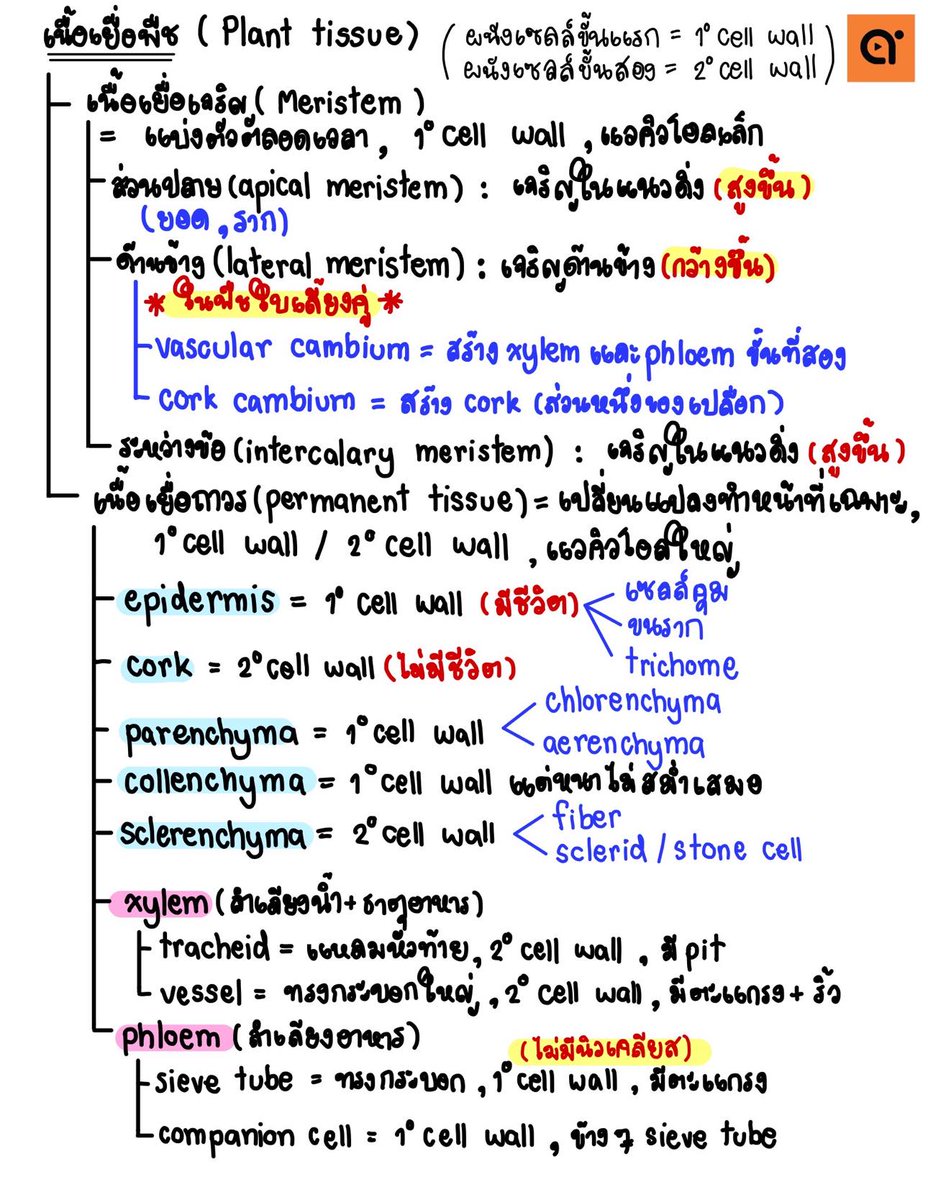 เนื้อเยื่อพืช (Plant tissue)
(ผนังเซลล์ขั้นแรก = 1° cell wall
ผนังเซลล์ขั้นสอง = 2° cell wall)
เนื้อเยื่อเจริญ (Meristem)
= แบ่งตัวตลอดเวลา, 1° cell wall, แวคิวโอลเล็ก
ส่วนปลาย (apical meristem) : เจริญในแนวดิ่ง (สูงขึ้น)
(ยอด, ราก)
ด้านข้าง (lateral meristem) : เจริญด้านข้าง (กว้างขึ้น)
* ในพืชใบเลี้ยงคู่ *
vascular cambium = สร้าง xylem และ phloem ขั้นที่สอง
cork cambium = สร้าง cork (ส่วนหนึ่งของเปลือก)
ระหว่างข้อ (intercalary meristem) : เจริญในแนวดิ่ง (สูงขึ้น)
เนื้อเยื่อถาวร (permanent tissue) = เปลี่ยนแปลงทำหน้าที่เฉพาะ,
1° cell wall / 2° cell wall, แวคิวโอลใหญ่
epidermis = 1° cell wall (มีชีวิต)
เซลล์คุม
ขนราก
trichome
cork = 2° cell wall (ไม่มีชีวิต)
parenchyma = 1° cell wall
chlorenchyma
aerenchyma
collenchyma = 1° cell wall แต่หนาไม่สม่ำเสมอ
sclerenchyma = 2° cell wall
fiber
sclerid / stone cell
xylem (ลำเลียงน้ำ + ธาตุอาหาร)
tracheid = แหลมหัวท้าย, 2° cell wall, มี pit
vessel = ทรงกระบอกใหญ่, 2° cell wall, มีตะแกรง + ริ้ว
phloem (ลำเลียงอาหาร)
(ไม่มีนิวเคลียส)
sieve tube = ทรงกระบอก, 1° cell wall, มีตะแกรง
companion cell = 1° cell wall, ข้างๆ sieve tube